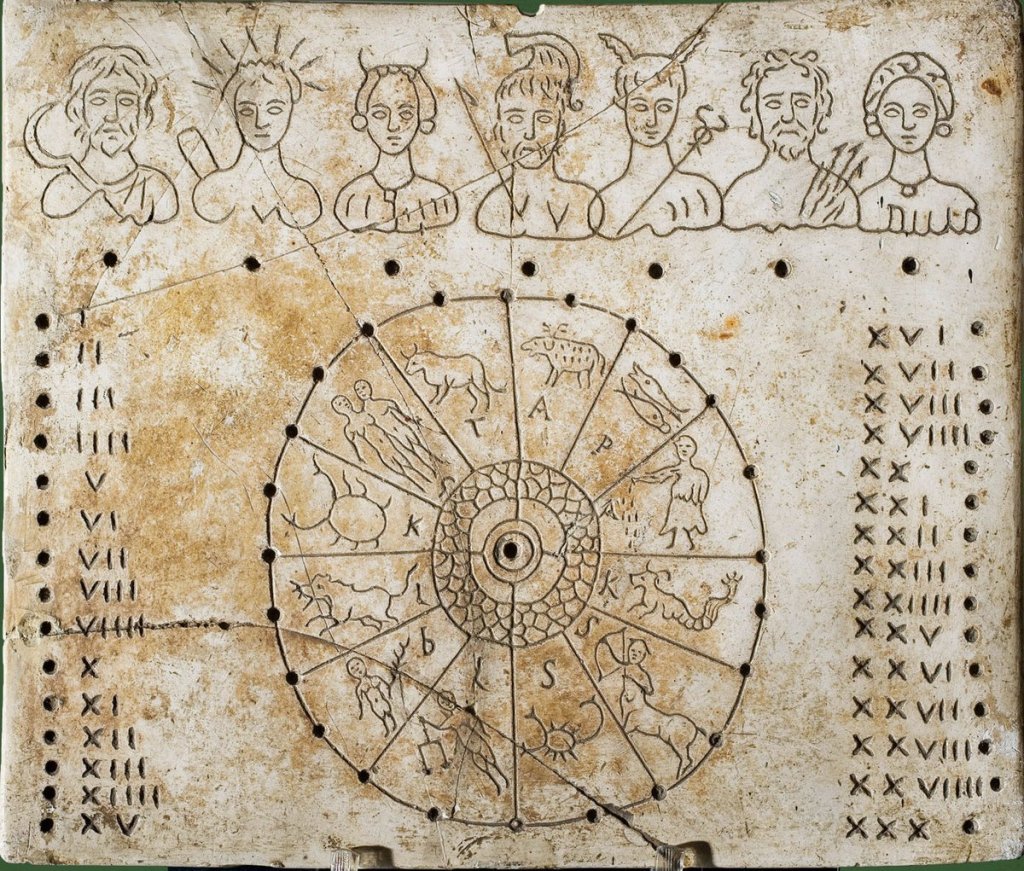 I
II
III
IIII
V
VI
VII
VIII
VIIII
X
XI
XII
XIII
XIIII
XV
A
P
A
K
S
S
b
L
K
T
XVI
XVII
XVIII
XVIIII
XX
XXI
XXII
XXIII
XXIIII
XXV
XXVI
XXVII
XXVIII
XXVIIII
XXX